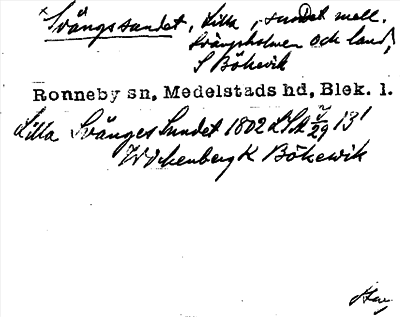 × Svängssundet, Lilla, sundet mell.
Svängsholmen och land,
S Bökevik
Ronneby sn, Medelstads hd, Blek. l.
Lilla Svänges Sundet 1802 LSA 29 13'
K Bökewik